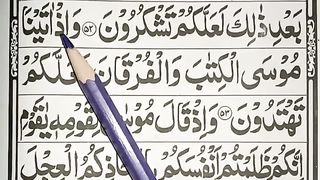 بَعْدِ ذٰلِكَ لَعَلَّكُمْ تَشْكُرُوْنَ ﴿۵۲﴾ وَاِذْ اٰتَيْنَا
مُوْسَى الْكِتٰبَ وَالْفُرْقَانَ لَعَلَّكُمْ
تَهْتَدُوْنَ ﴿۵۳﴾ وَاِذْ قَالَ مُوْسٰى لِقَوْمِهٖ يٰقَوْمِ
اِنَّكُمْ ظَلَمْتُمْ اَنْفُسَكُمْ بِاتِّخَاذِكُمُ الْعِجْلَ